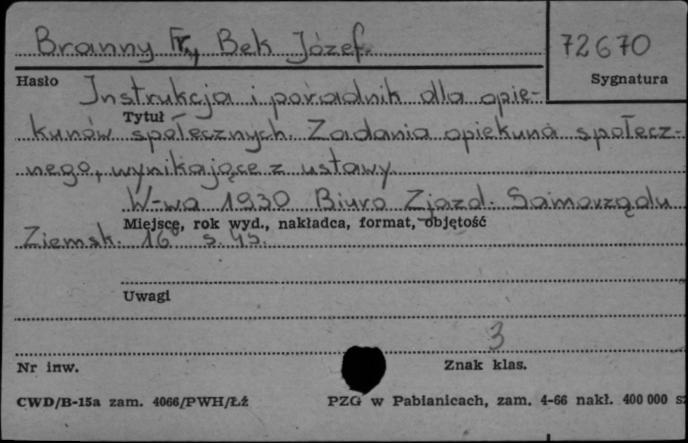 Branny Fr., Bek Józef.
72670
Hasło
Sygnatura
Instrukcja i poradnik dla opie-
Tytuł
kunów społecznych. Zadania opiekuna społecz-
nego, wynikające z ustawy
W-wa 1930 Biuro Zjazd. Samorządu
Miejsce, rok wyd., nakładca, format, objętość
Ziemsk. 16° s. 45.
Uwagi
3
Nr inw.
Znak klas.
CWD/B-15a zam. 4066/PWH/Łź
PZG w Pabianicach, zam. 4-66 nakł. 400 000 sz